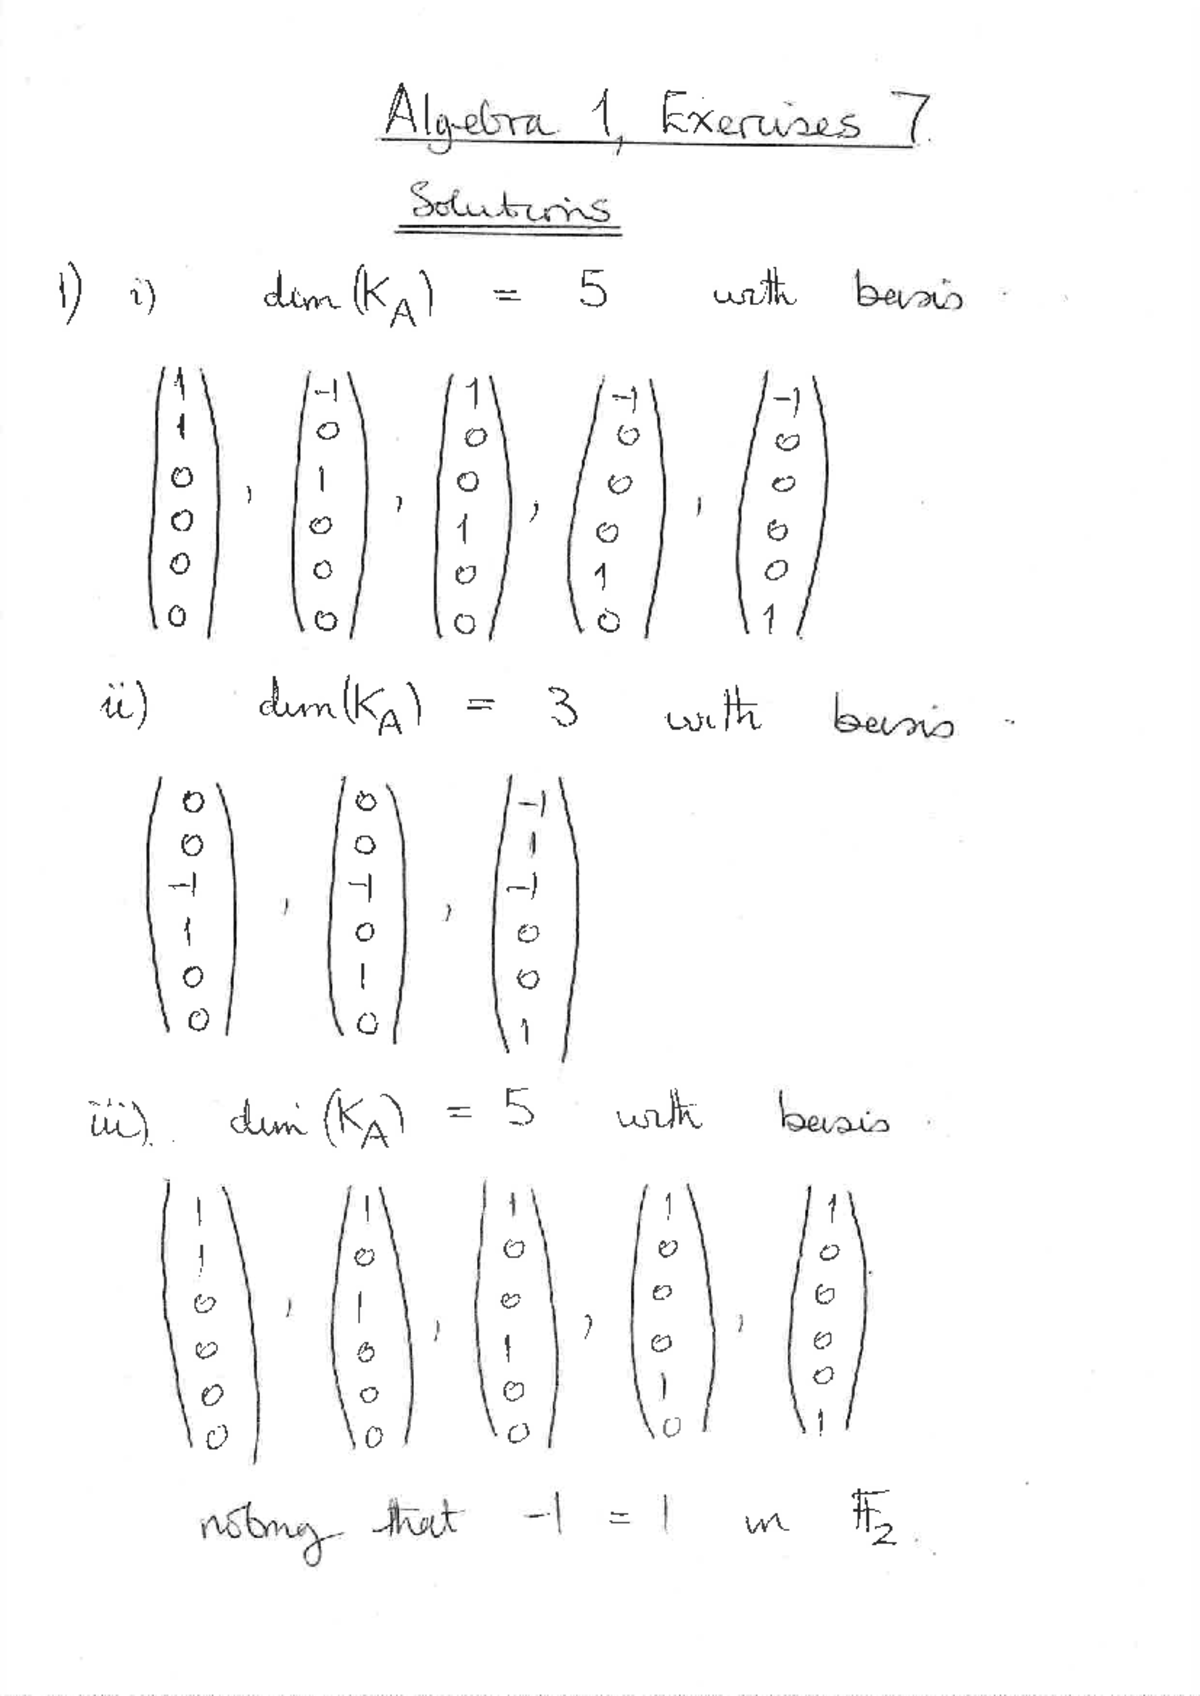 Algebra 1, Exercises 7.
Solutions
1) i) dim (K_A) = 5 with basis
(1 1 0 0 0 0), (-1 0 1 0 0 0), (1 0 0 1 0 0), (-1 0 0 0 1 0), (-1 0 0 0 0 1)
ii) dim(K_A) = 3 with basis
(0 0 -1 1 0 0), (0 0 -1 0 1 0), (-1 1 -1 0 0 1)
iii). dim (K_A) = 5 with basis
(1 1 0 0 0 0), (1 0 1 0 0 0), (1 0 0 1 0 0), (1 0 0 0 1 0), (1 0 0 0 0 1)
noting that -1 = 1 in 𝔽_2.